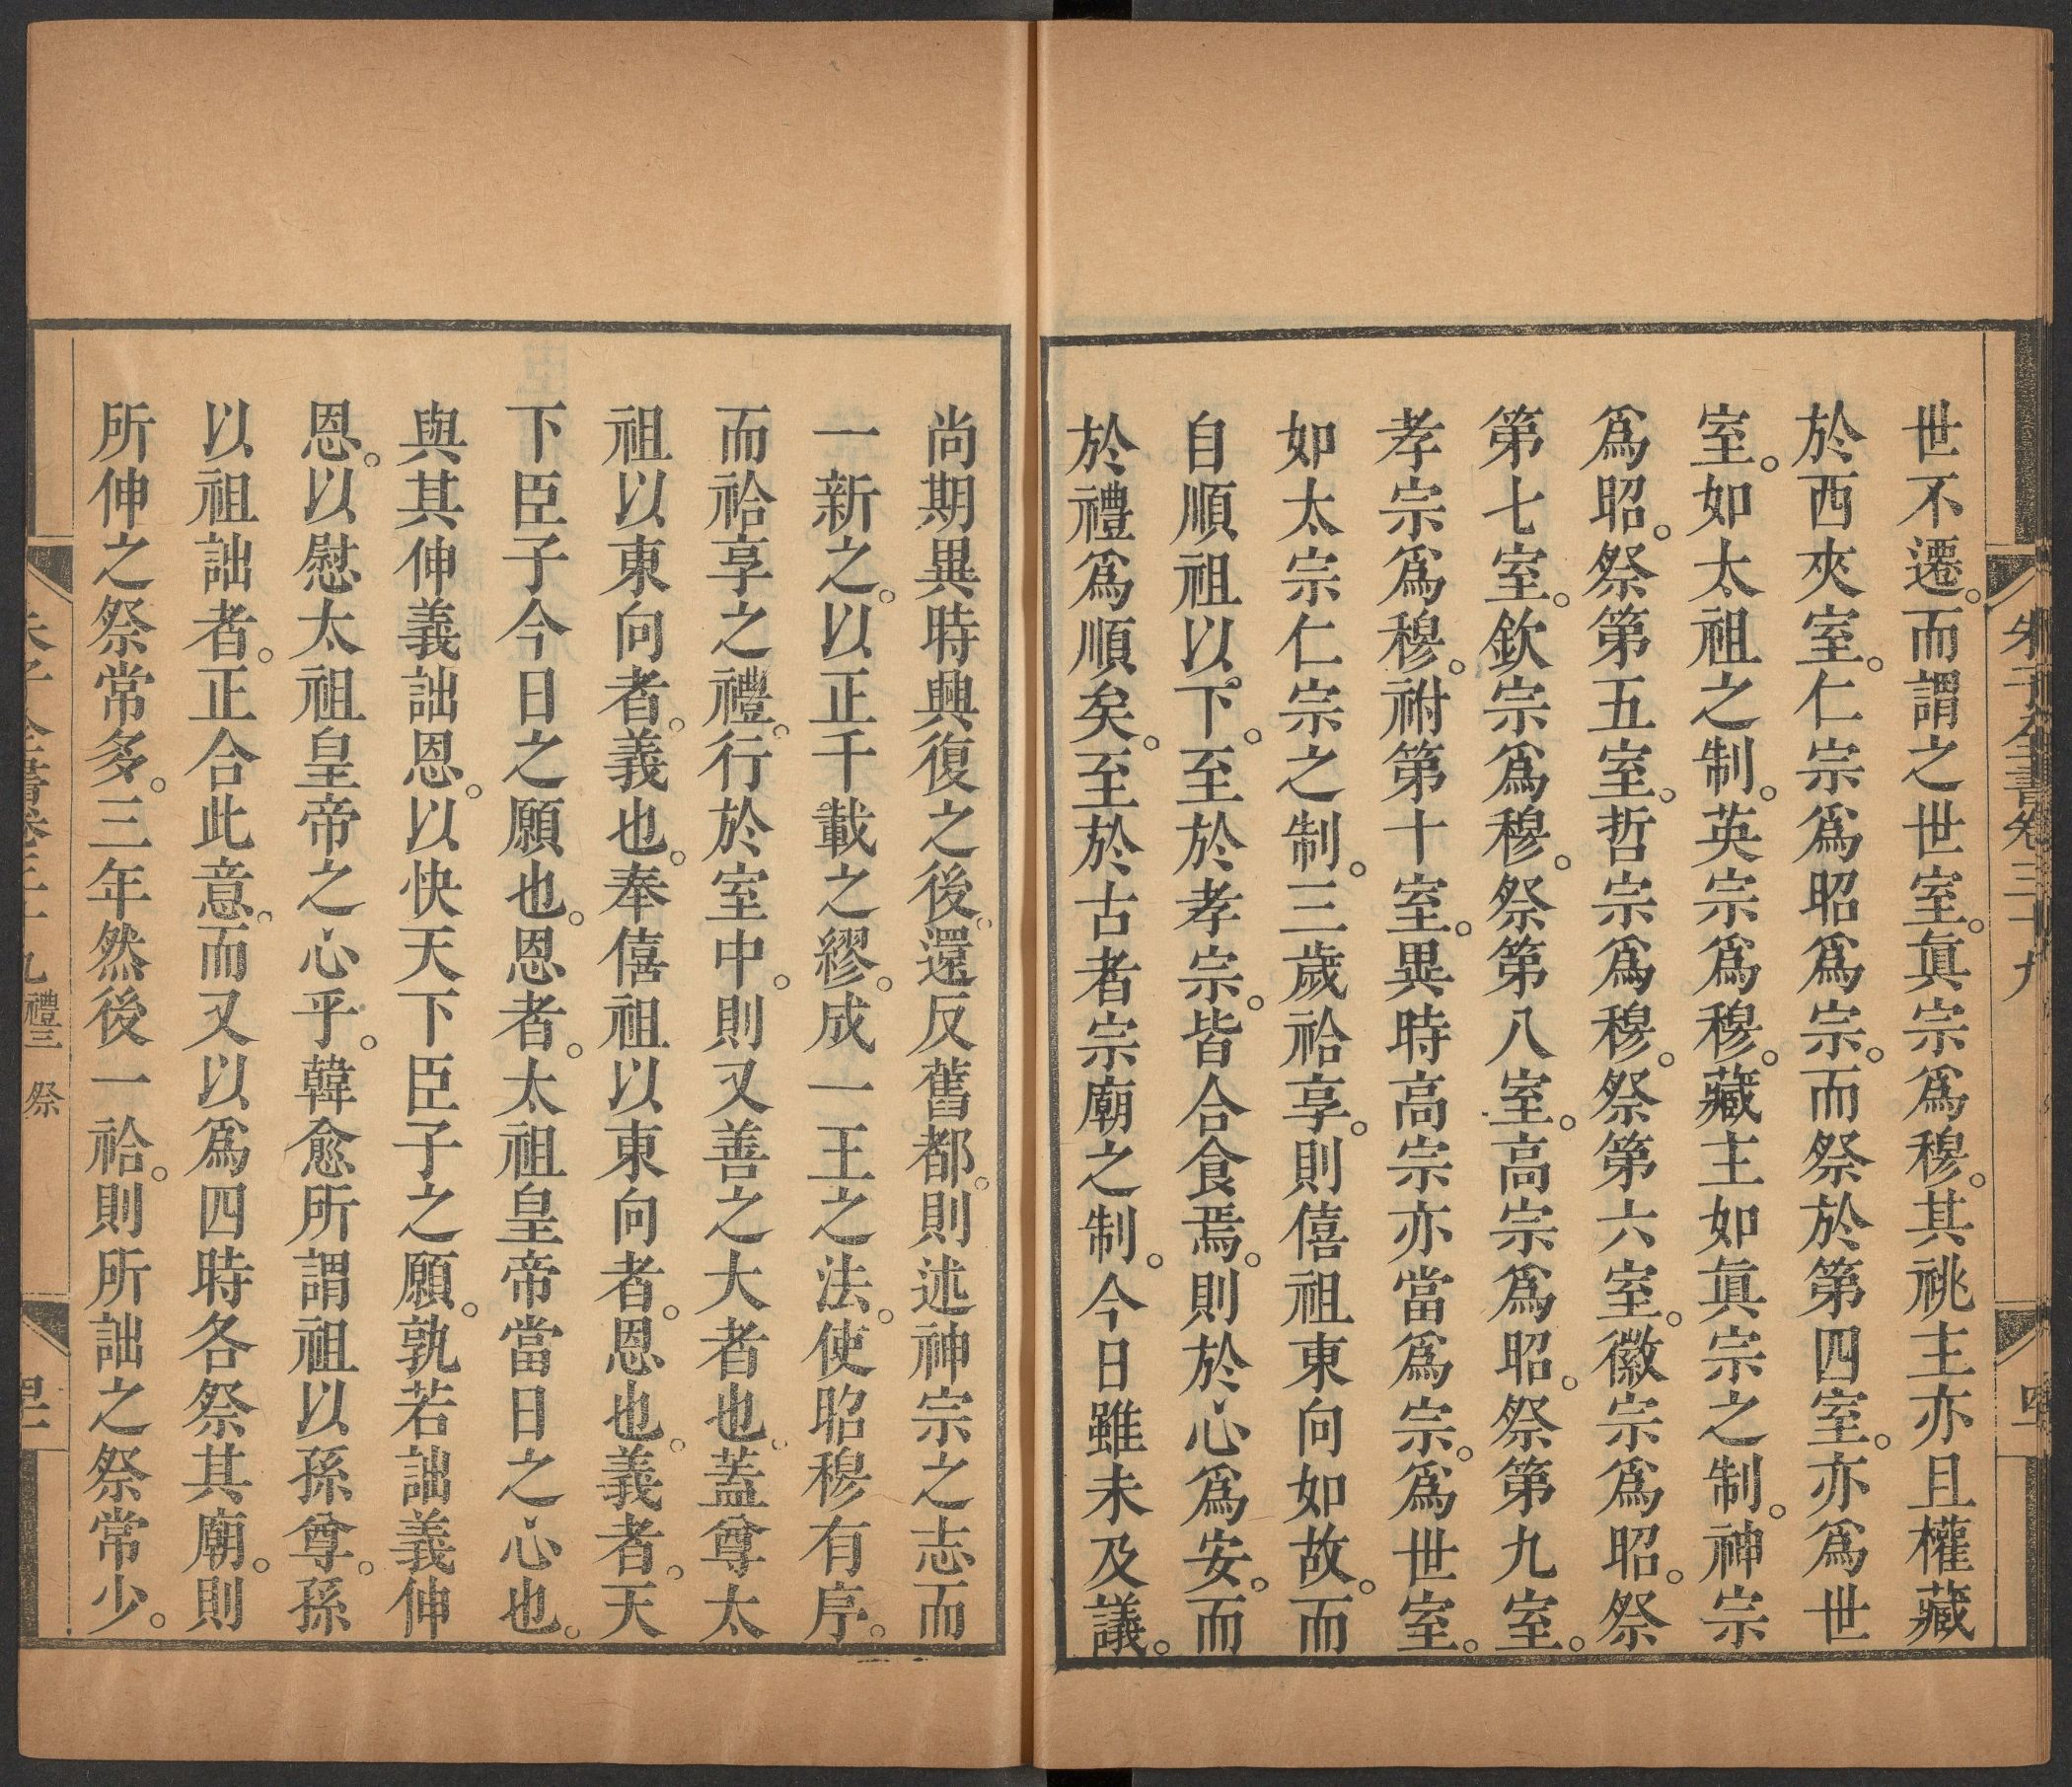 朱子全書卷三十九
世不遷。而謂之世室。眞宗爲穆。其祧主亦且權藏
於西夾室。仁宗爲昭爲宗。而祭於第四室。亦爲世
室。如太祖之制。英宗爲穆。藏主如眞宗之制。神宗
爲昭。祭第五室。哲宗爲穆。祭第六室。徽宗爲昭。祭
第七室。欽宗爲穆。祭第八室。高宗爲昭。祭第九室。
孝宗爲穆。祔第十室。異時高宗亦當爲宗。爲世室。
如太宗仁宗之制。三歲祫享。則僖祖東向如故。而
自順祖以下。至於孝宗。皆合食焉。則於心爲安。而
於禮爲順矣。至於古者宗廟之制。今日雖未及議。
尚期異時興復之後。還反舊都。則述神宗之志而
一新之。以正千載之繆。成一王之法。使昭穆有序。
而祫享之禮。行於室中。則又善之大者也。蓋尊太
祖以東向者。義也。奉僖祖以東向者。恩也。義者。天
下臣子今日之願也。恩者。太祖皇帝當日之心也。
與其伸義詘恩。以快天下臣子之願。孰若詘義伸
恩。以慰太祖皇帝之心乎。韓愈所謂祖以孫尊。孫
以祖詘者。正合此意。而又以爲四時各祭其廟。則
所伸之祭常多。三年然後一祫。則所詘之祭常少。
朱子全書卷三十九 禮三 祭